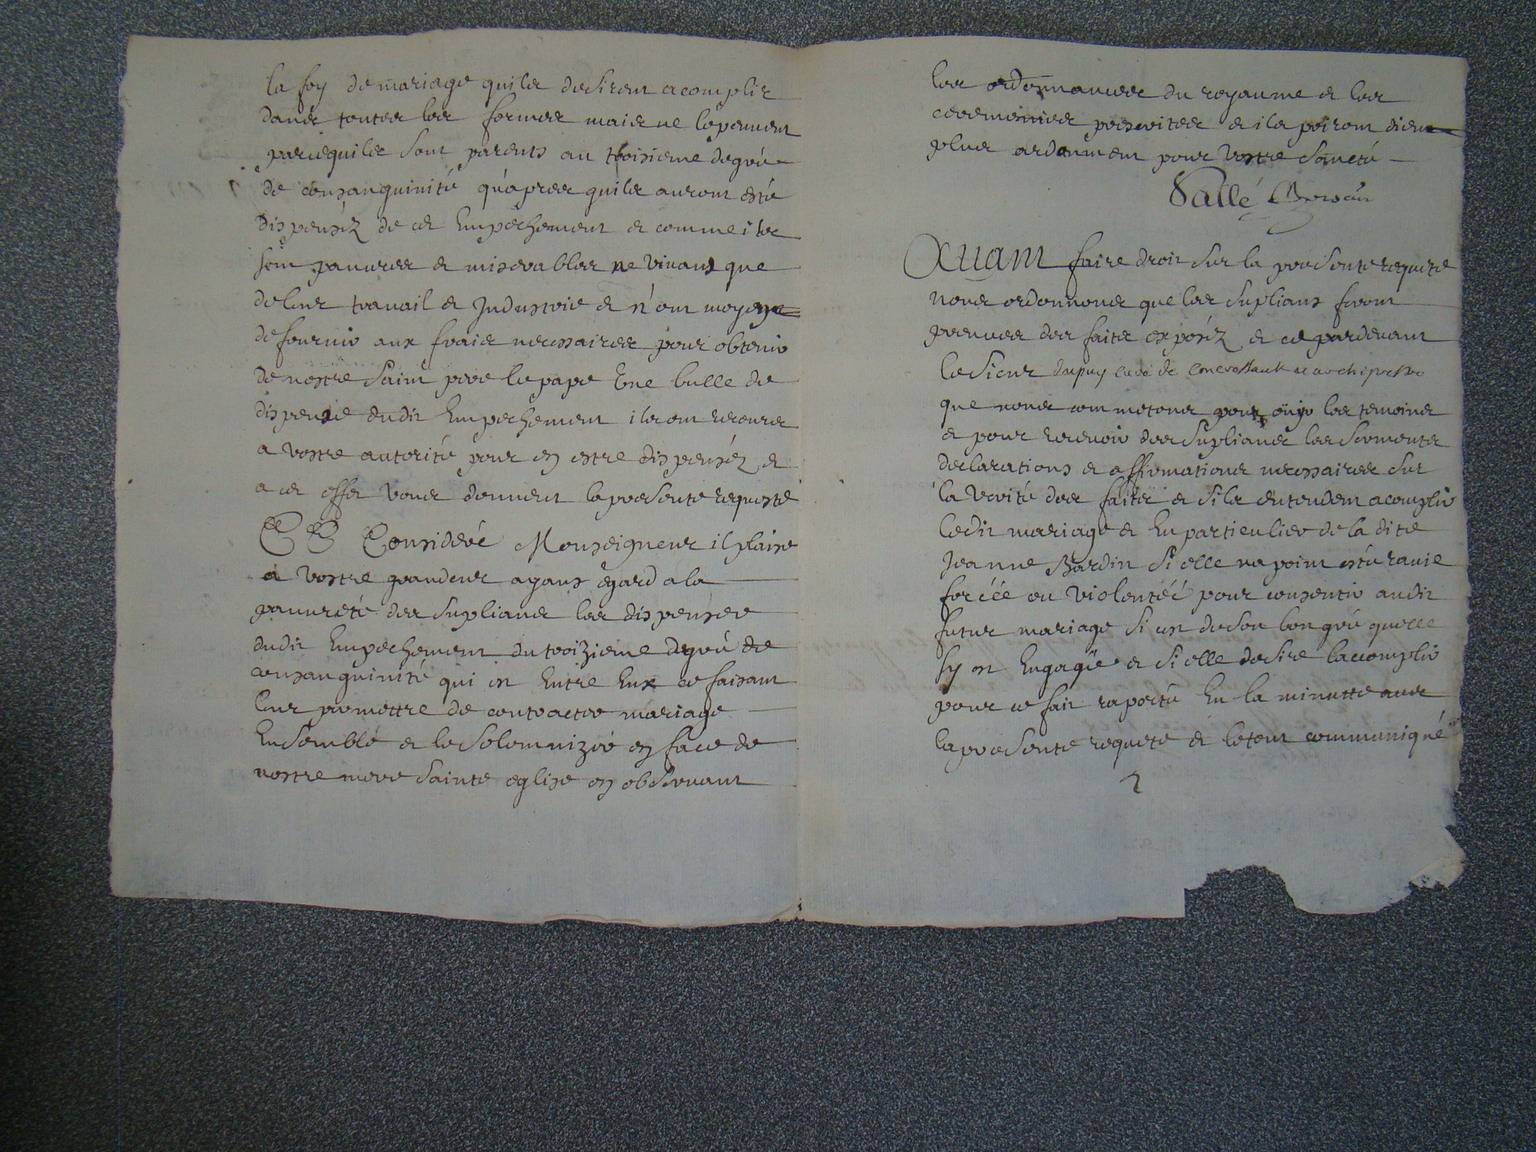 la foy de mariage quils desirent acomplir
dans toutes les formes mais ne le peuvent
parcequils sont parents au troisieme degré
de consanguinité qu'apres quils auront esté
dispenséz de cet Empeschement et comme ils
sont pauvres et miserables ne vivans que
de leur travail et Industrie et n'ont moyens
de fournir aux frais necessaires pour obtenir
de nostre saint pere le pape Une bulle de
dispense dudit Empeschement ils ont recours
a vostre autorité pour en estre dispenséz et
a cet effet vous donnent la presente requeste
CE Consideré Monseigneur il plaise
a vostre grandeur ayans egard a la
pauvreté des suplians les dispenser
dudit Empechement du troizieme degré de
consanguinité qui est Entre Eux ce faisant
leur promettre de contracter mariage
Ensemble et le solemnizer en face de
nostre mere sainte eglise en observant
les ordonnances du royaume et les
ceremonies et ils priront dieu
plus ardanment pour vostre santé
Sallé
AUANT faire droit sur la presente requete
nous ordonnons que les suplians feront
preuves des faits exposéz et ce pardevant
le sieur dupuy curé de et archiprestre
que nous commetons pour ouyr les temoins
et pour recevoir des suplians les serments
declarations et affirmations necessaires sur
la verité des faits et sils entendent acomplir
ledit mariage et En particulier de la dite
Jeanne Bardin si elle na point esté ravie
forcéé ou violentéé pour consentir audit
futur mariage si cest de son bon gré quelle
sy est Engagée et si elle desire lacomplir
pour ce fait raporté En la minutte avec
la presente requete et letout communiqué